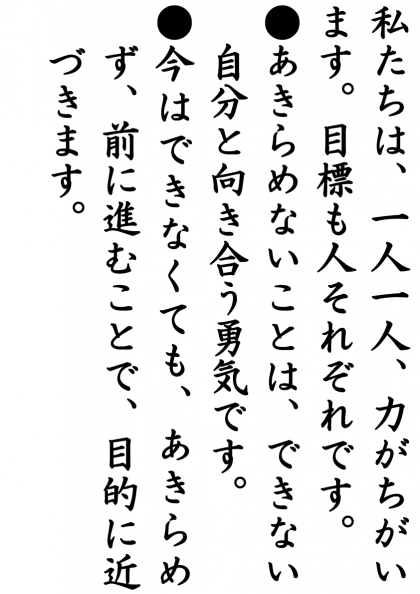 私たちは、一人一人、力がちがい
ます。目標も人それぞれです。
●あきらめないことは、できない
自分と向き合う勇気です。
●今はできなくても、あきらめ
ず、前に進むことで、目的に近
づきます。